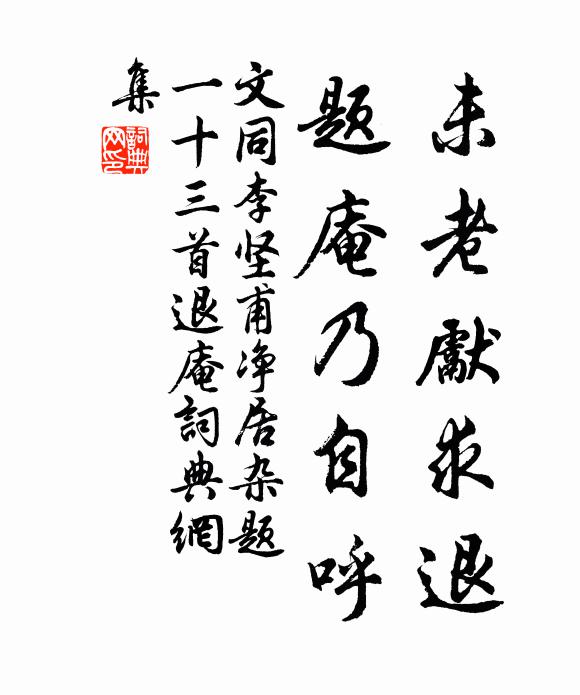 未老獻求退
題庵乃自呼
文同李坚甫净居杂题
一十三首退庵詞典網
集
詞典網印